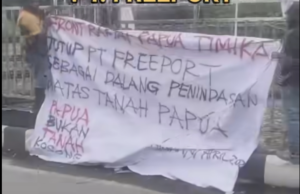 PT. FREEPORT
FRONT RAKYAT PAPUA TIMIKA
TUTUP PT FREEPORT
SEBAGAI DALANG PENINDASAN
DIATAS TANAH PAPUA
PAPUA
BUKAN
TANAH